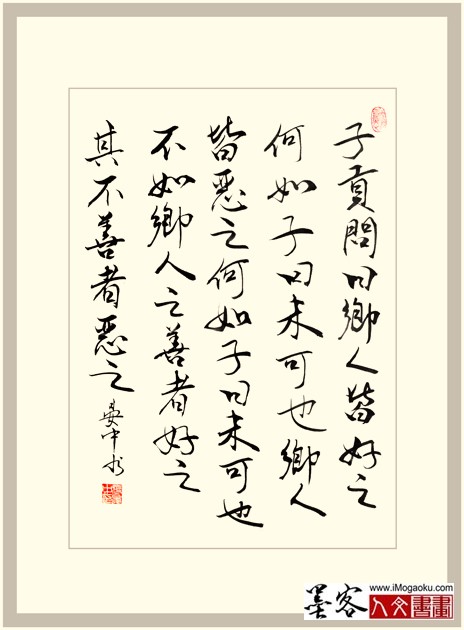 子貢問曰鄉人皆好之
何如子曰未可也鄉人
皆惡之何如子曰未可也
不如鄉人之善者好之
其不善者惡之
中书
墨客
www.iMogaoku.com
人文書畫